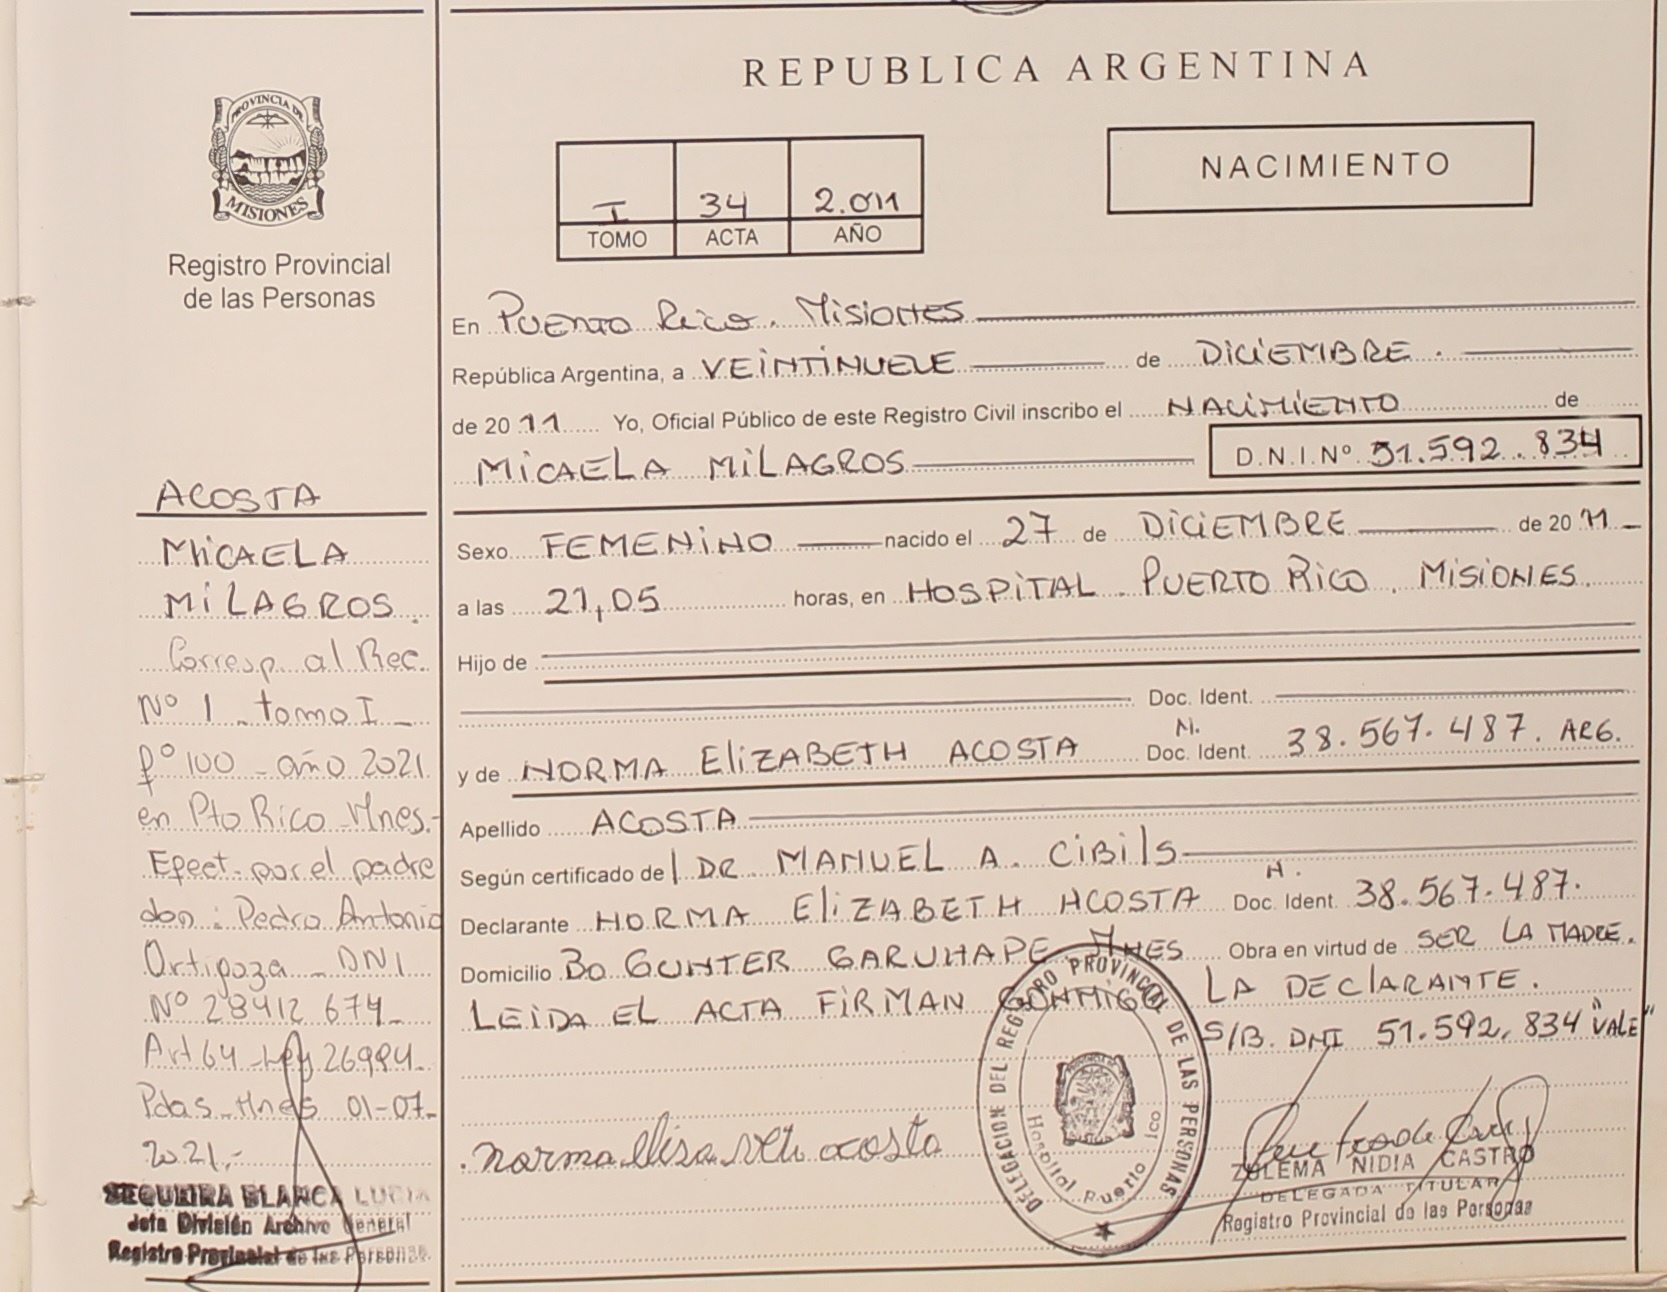 REPUBLICA ARGENTINA
PROVINCIA DE
MISIONES
Registro Provincial
de las Personas
I 34 2.011
TOMO ACTA AÑO
NACIMIENTO
En PUERTO RICO. MISIONES
República Argentina, a VEINTINUEVE de DICIEMBRE.
de 2011 Yo, Oficial Público de este Registro Civil inscribo el NACIMIENTO de
MICAELA MILAGROS D.N.I.Nº 51.592.834
Sexo FEMENINO nacido el 27 de DICIEMBRE de 2011
a las 21,05 horas, en HOSPITAL. PUERTO RICO. MISIONES.
Hijo de
Doc. Ident.
y de NORMA ELIZABETH ACOSTA M. Doc. Ident. 38.567.487. ARG.
Apellido ACOSTA
Según certificado de DR. MANUEL A. CIBILS
Declarante NORMA ELIZABETH ACOSTA Doc. Ident. 38.567.487.
Domicilio Bo GUNTER GARUHAPE MNES Obra en virtud de SER LA MADRE.
LEIDA EL ACTA FIRMAN CONMIGO LA DECLARANTE.
S/B. DNI 51.592.834 "VALE"
norma elisabeth acosta
DELEGACION DEL REGISTRO PROVINCIAL DE LAS PERSONAS
Hospital Puerto Rico
ZULEMA NIDIA CASTRO
DELEGADA TITULAR
Registro Provincial de las Personas
ACOSTA
MICAELA
MILAGROS.
Corresp. al Rec.
Nº 1 - tomo I -
fº 100 - año 2021
en Pto Rico - Mnes.-
Efect. por el padre
don: Pedro Antonio
Ortigoza - DNI
Nº 28412 674-
Art 64 - Ley 26994-
Pdas - Mnes 01-07-
2021.-
SEQUEIRA BLANCA LUCIA
Jefa División Archivo General
Registro Provincial de las Personas